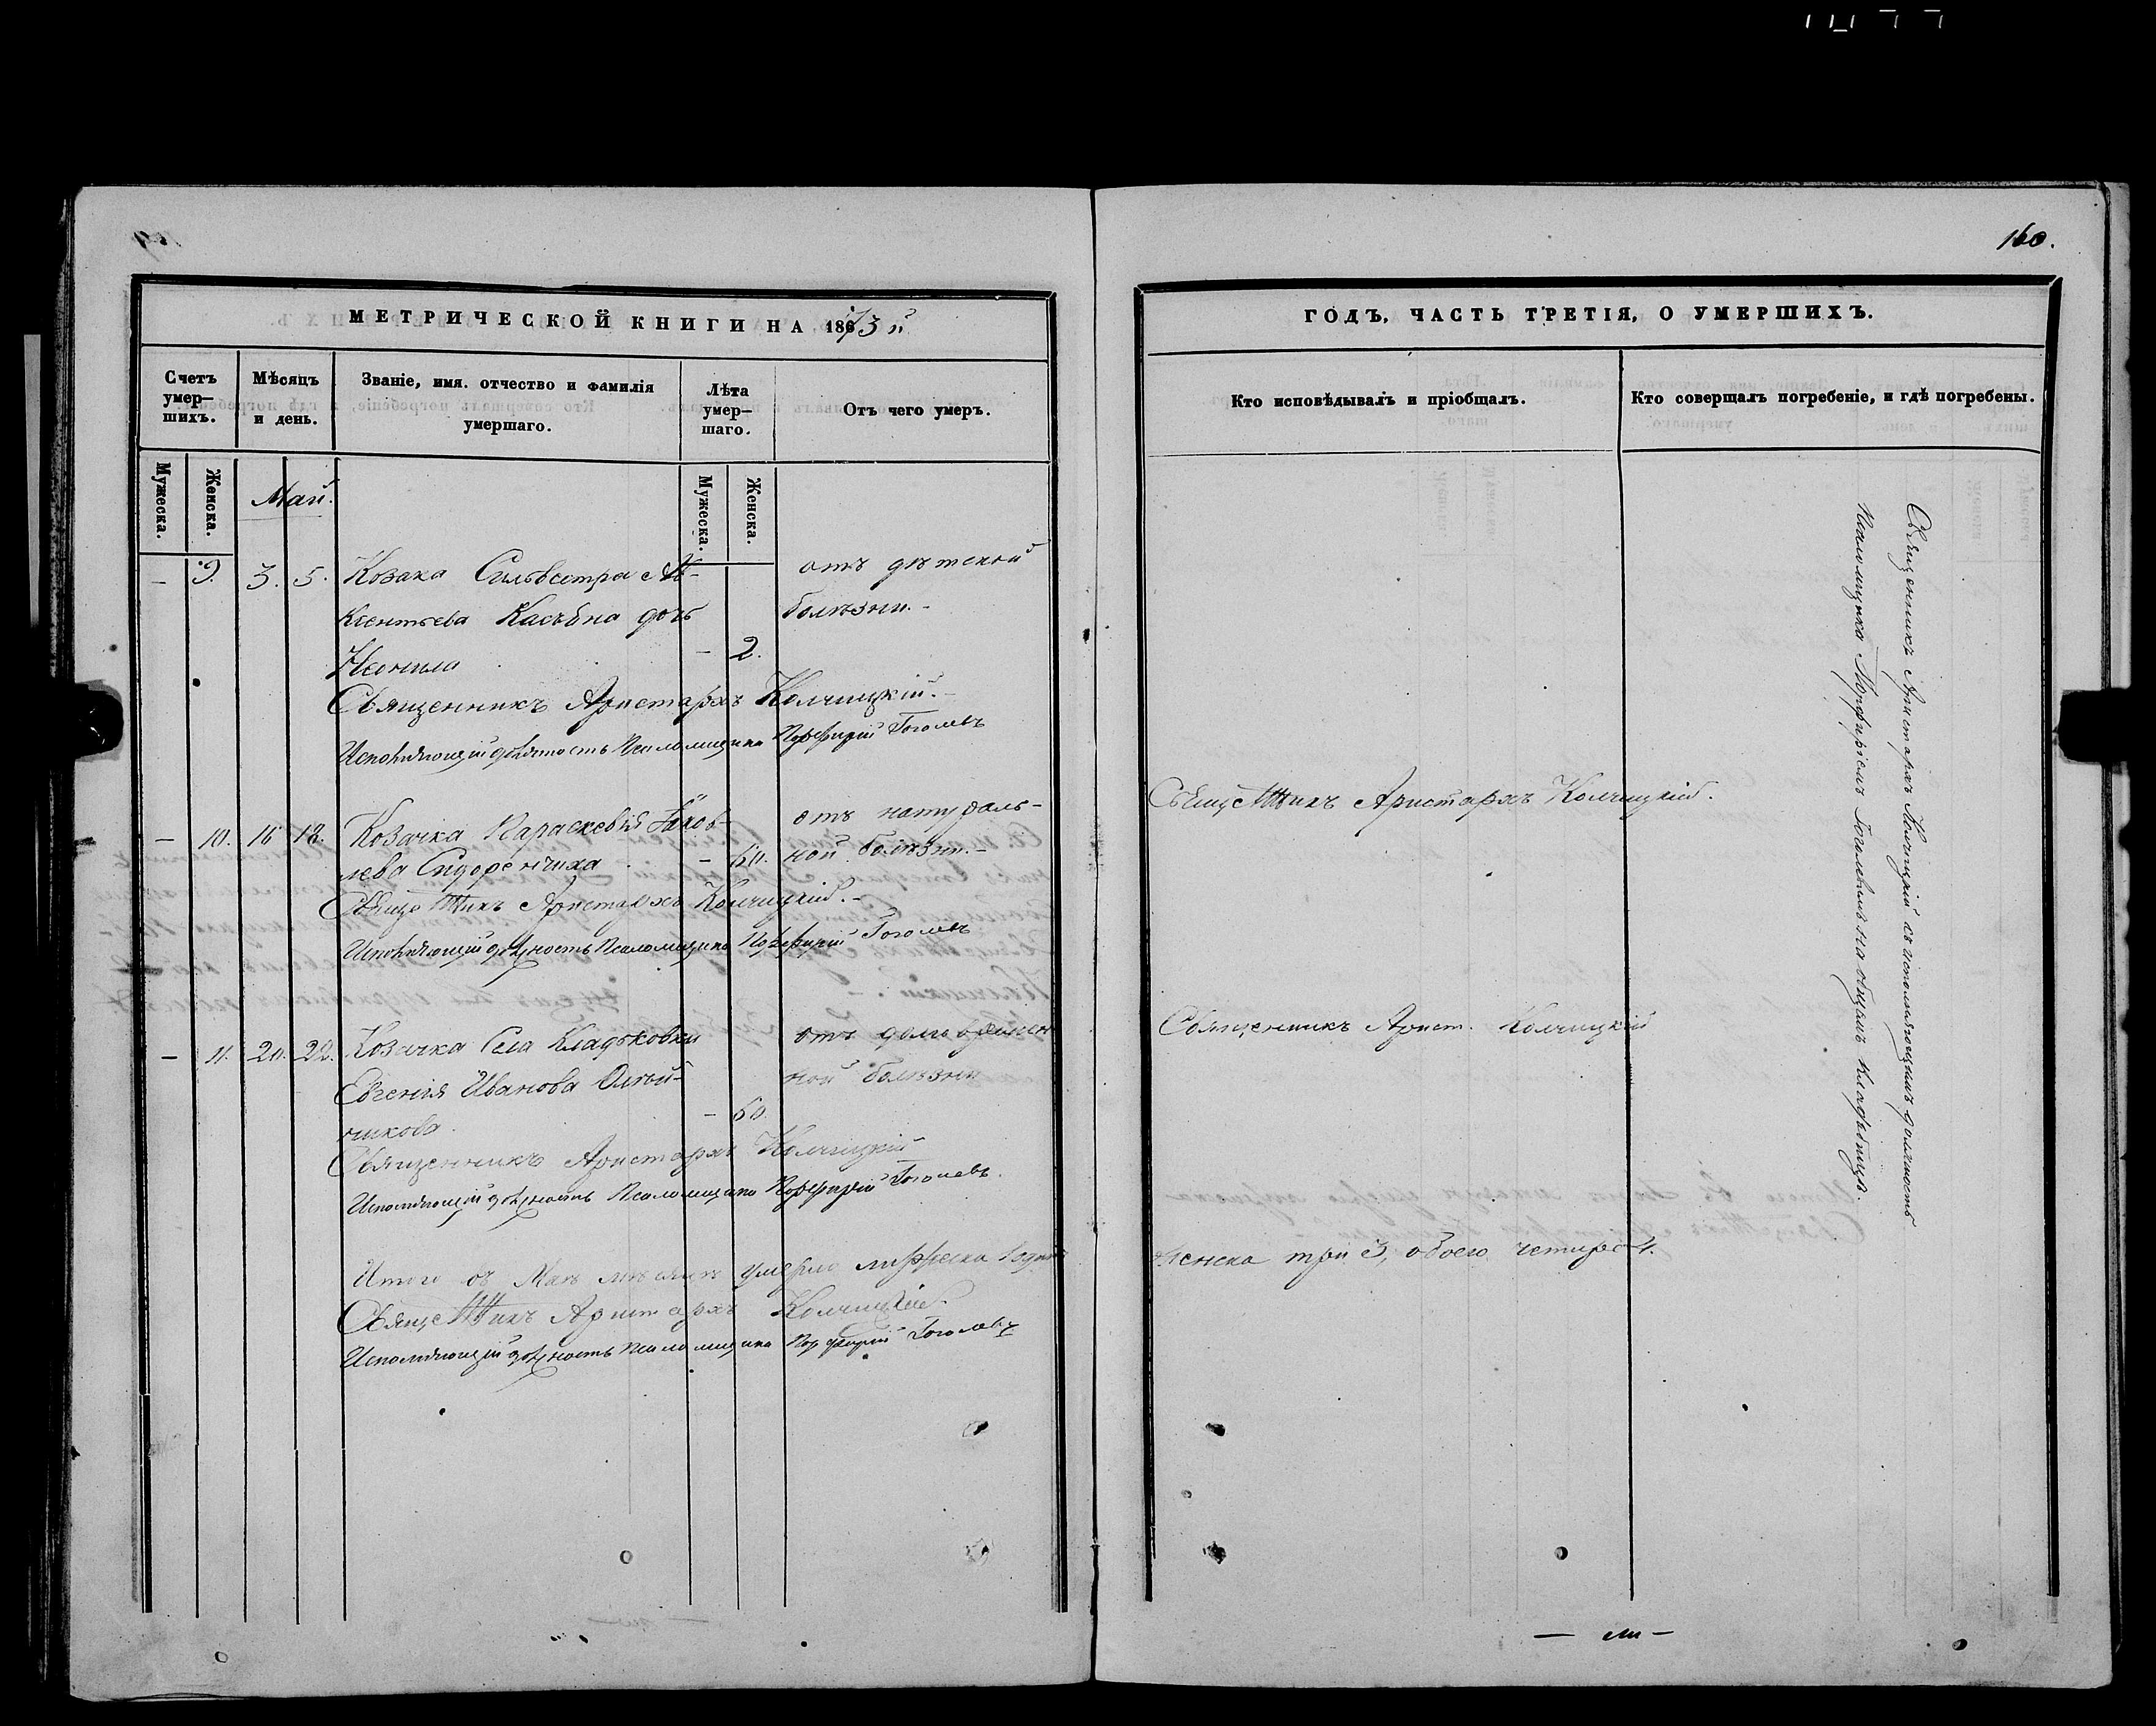 160.
МЕТРИЧЕСКОЙ КНИГИ НА 1873 й
ГОДЪ, ЧАСТЬ ТРЕТІЯ, О УМЕРШИХЪ.
Счетъ умер–шихъ.
Мѣсяцъ и день.
Званіе, имя. отчество и фамилія умершаго.
Лѣта умер–шаго.
Отъ чего умеръ.
Кто исповѣдывалъ и пріобщалъ.
Кто совершалъ погребеніе, и гдѣ погребены.
Мужеска.
Женска.
Май.
Мужеска.
Женска.
– 9. 3. 5. Козака Сильвестра Ав- отъ дѣтской
ксентьева дочь болѣзни.-
Ксенила – 2.
Священникъ Аристархъ Колчицкій.-
Исполняющій должность Псаломщика Порфирій Гоголевъ
– 10. 16 18. Козачка Параскевія Яков- отъ натураль-
лева Сидоренчиха – 60. ной болѣзни.-
Священникъ Аристархъ Колчицкій.-
Исполняющій должность Псаломщика Порфирій Гоголевъ
– 11. 20. 22. Козачка Села Кладьковки отъ
Евгенія Иванова Олѣй- ной болѣзни
никова. – 60.
Священникъ Аристархъ Колчицкій
Исполняющій должность Псаломщика Порфирій Гоголевъ.
Итого въ Маѣ мѣсяцѣ умерло мужеска 1 одинъ
Священникъ Аристархъ Колчицкій.
Исполняющій должность Псаломщика Порфирій Гоголевъ
Священникъ Аристархъ Колчицкій.
Священникъ Арист. Колчицкій
женска три 3, обоего четыре 4.
Священникъ Аристархъ Колчицкій съ исполняющимъ должность
Псаломщика Порфиріемъ Гоголевымъ на общемъ кладбищѣ.